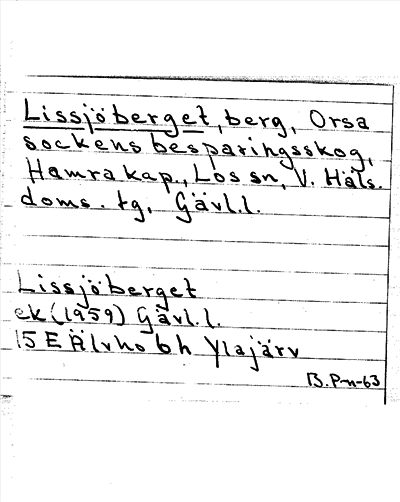 Lissjöberget, berg, Orsa
sockens besparingsskog,
Hamra kap., Los sn, V. Häls.
doms. tg, Gävl.l.
Lissjöberget
ek (1959) Gävl.l.
15 E Älvho b h Ylajärv
B. P-n-63